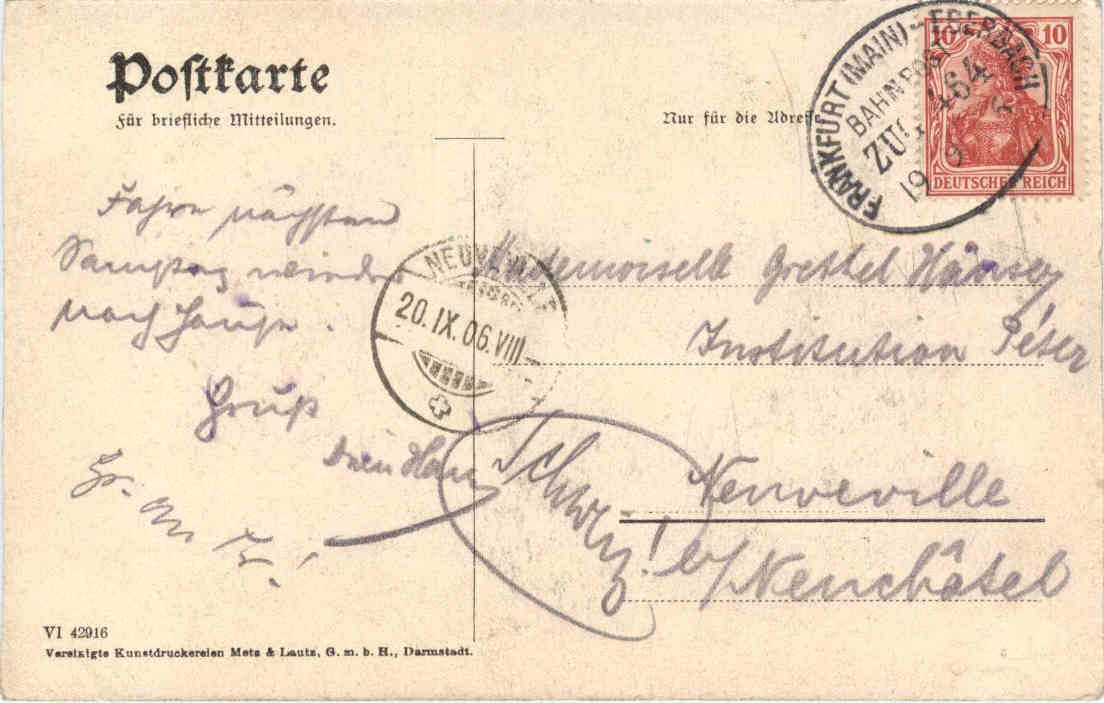 Postkarte
Für briefliche Mitteilungen.
Nur für die Adresse.
FRANKFURT (MAIN) - EBERBACH
BAHNPOST
ZUG 464
19 9 6
10 10
DEUTSCHES REICH
Fahre nächsten
Samstag wieder
nach Hause.
Gruß
Dein Hans
NEUVEVILLE
20.IX.06.VIII
Mademoiselle Grettel
Institution Péter
Neuveville
b/Neuchâtel
Schweiz!
VI 42916
Vereinigte Kunstdruckereien Metz & Lautz, G. m. b. H., Darmstadt.